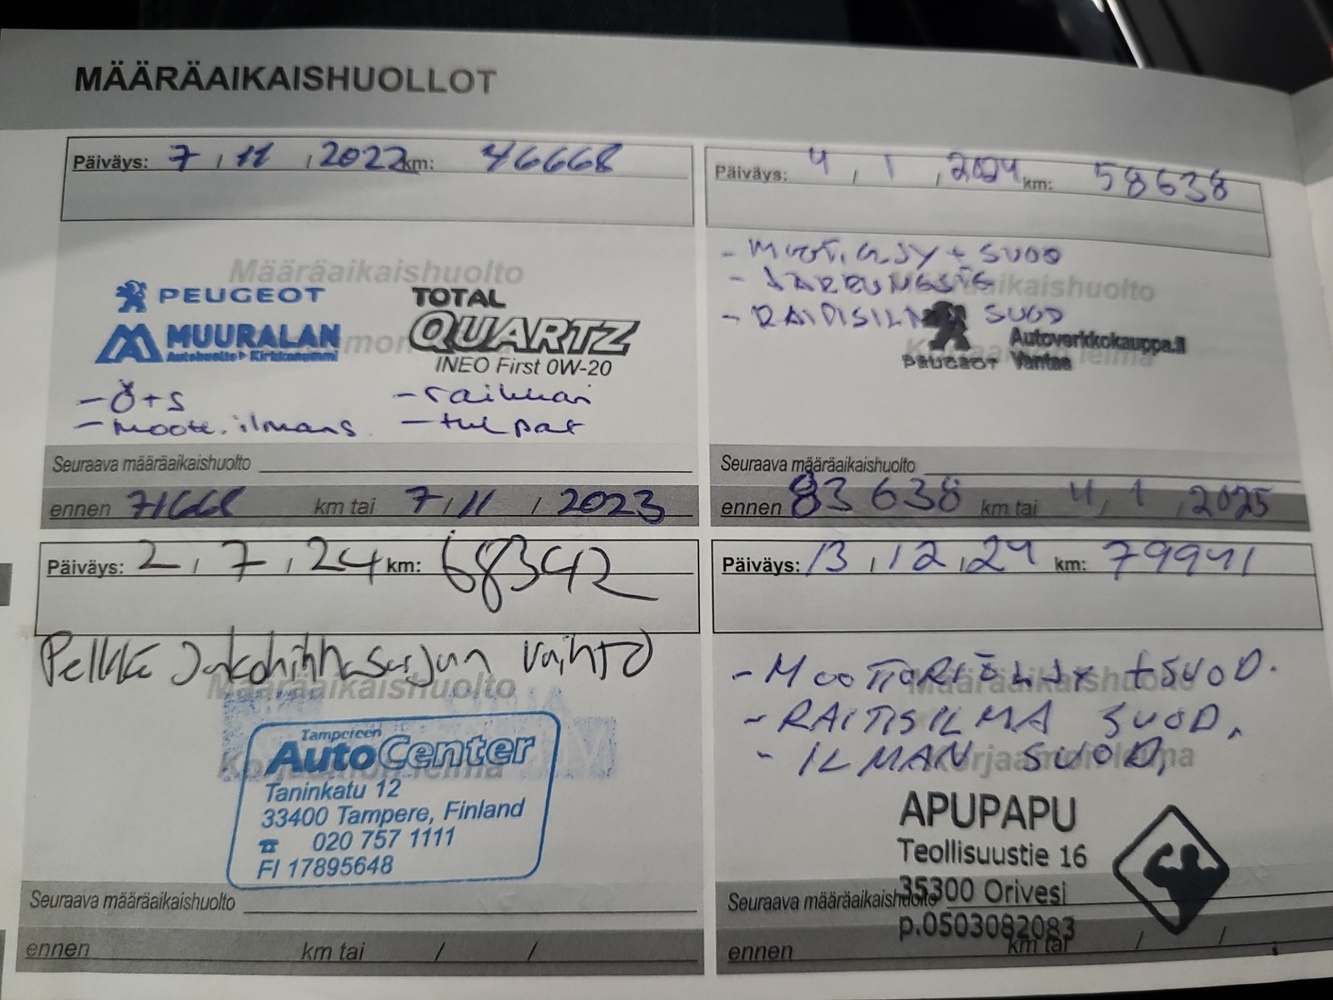 MÄÄRÄAIKAISHUOLLOT
Päiväys: 7 / 11 / 2022 km: 46668
Määräaikaishuolto
PEUGEOT
MUURALAN
Autohuolto Kirkkonummi
TOTAL
QUARTZ
INEO First 0W-20
- Ö+S
- raikkari
- moott.ilmans.
- tulpat
Seuraava määräaikaishuolto
ennen 71668 km tai 7 / 11 / 2023
Päiväys: 4 / 1 / 2024 km: 58638
- MOOT.ÖLJY + SUOD
- JARRUNESTE
- RAITISILMA SUOD
Määräaikaishuolto
PEUGEOT
Autoverkkokauppa.fi
Vantaa
Korjaamon leima
Seuraava määräaikaishuolto
ennen 83638 km tai 4 / 1 / 2025
Päiväys: 2 / 7 / 24 km: 68342
Pelkkä Jakohihnasarjan vaihto
Määräaikaishuolto
Korjaamon leima
Tampereen
AutoCenter
Taninkatu 12
33400 Tampere, Finland
☎ 020 757 1111
FI 17895648
Seuraava määräaikaishuolto
ennen km tai / /
Päiväys: 13 / 12 / 24 km: 79941
- MOOTTORIÖLJY + SUOD.
- RAITISILMA SUOD.
- ILMAN SUOD.
Määräaikaishuolto
Korjaamon leima
APUPAPU
Teollisuustie 16
35300 Orivesi
p.0503082083
Seuraava määräaikaishuolto
ennen km tai / /